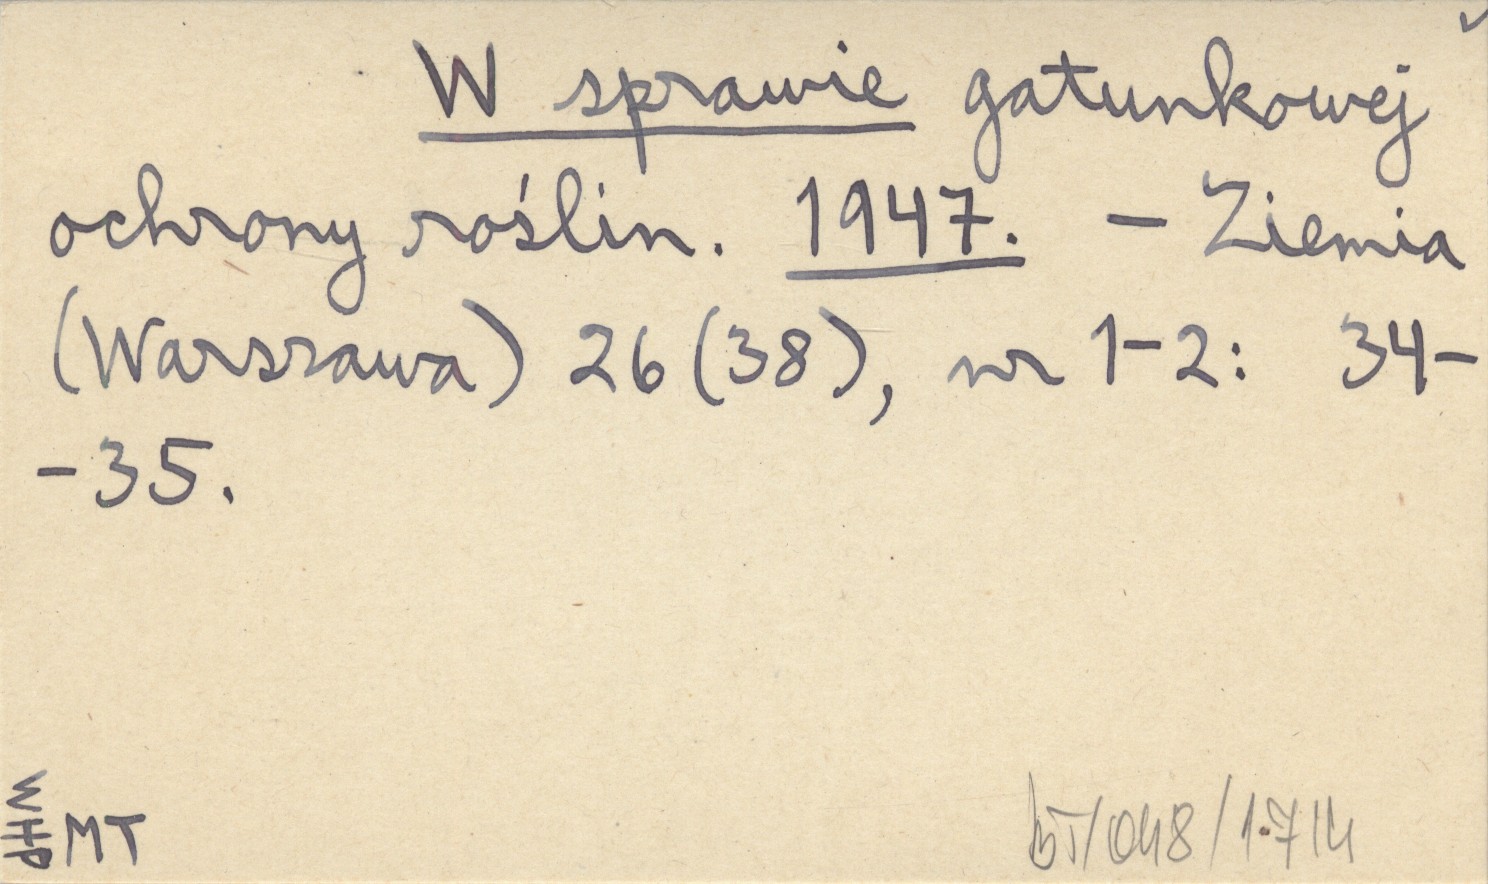 W sprawie gatunkowej
ochrony roślin. 1947. – Ziemia
(Warszawa) 26 (38), nr 1–2: 34–
–35.
WHP
MT